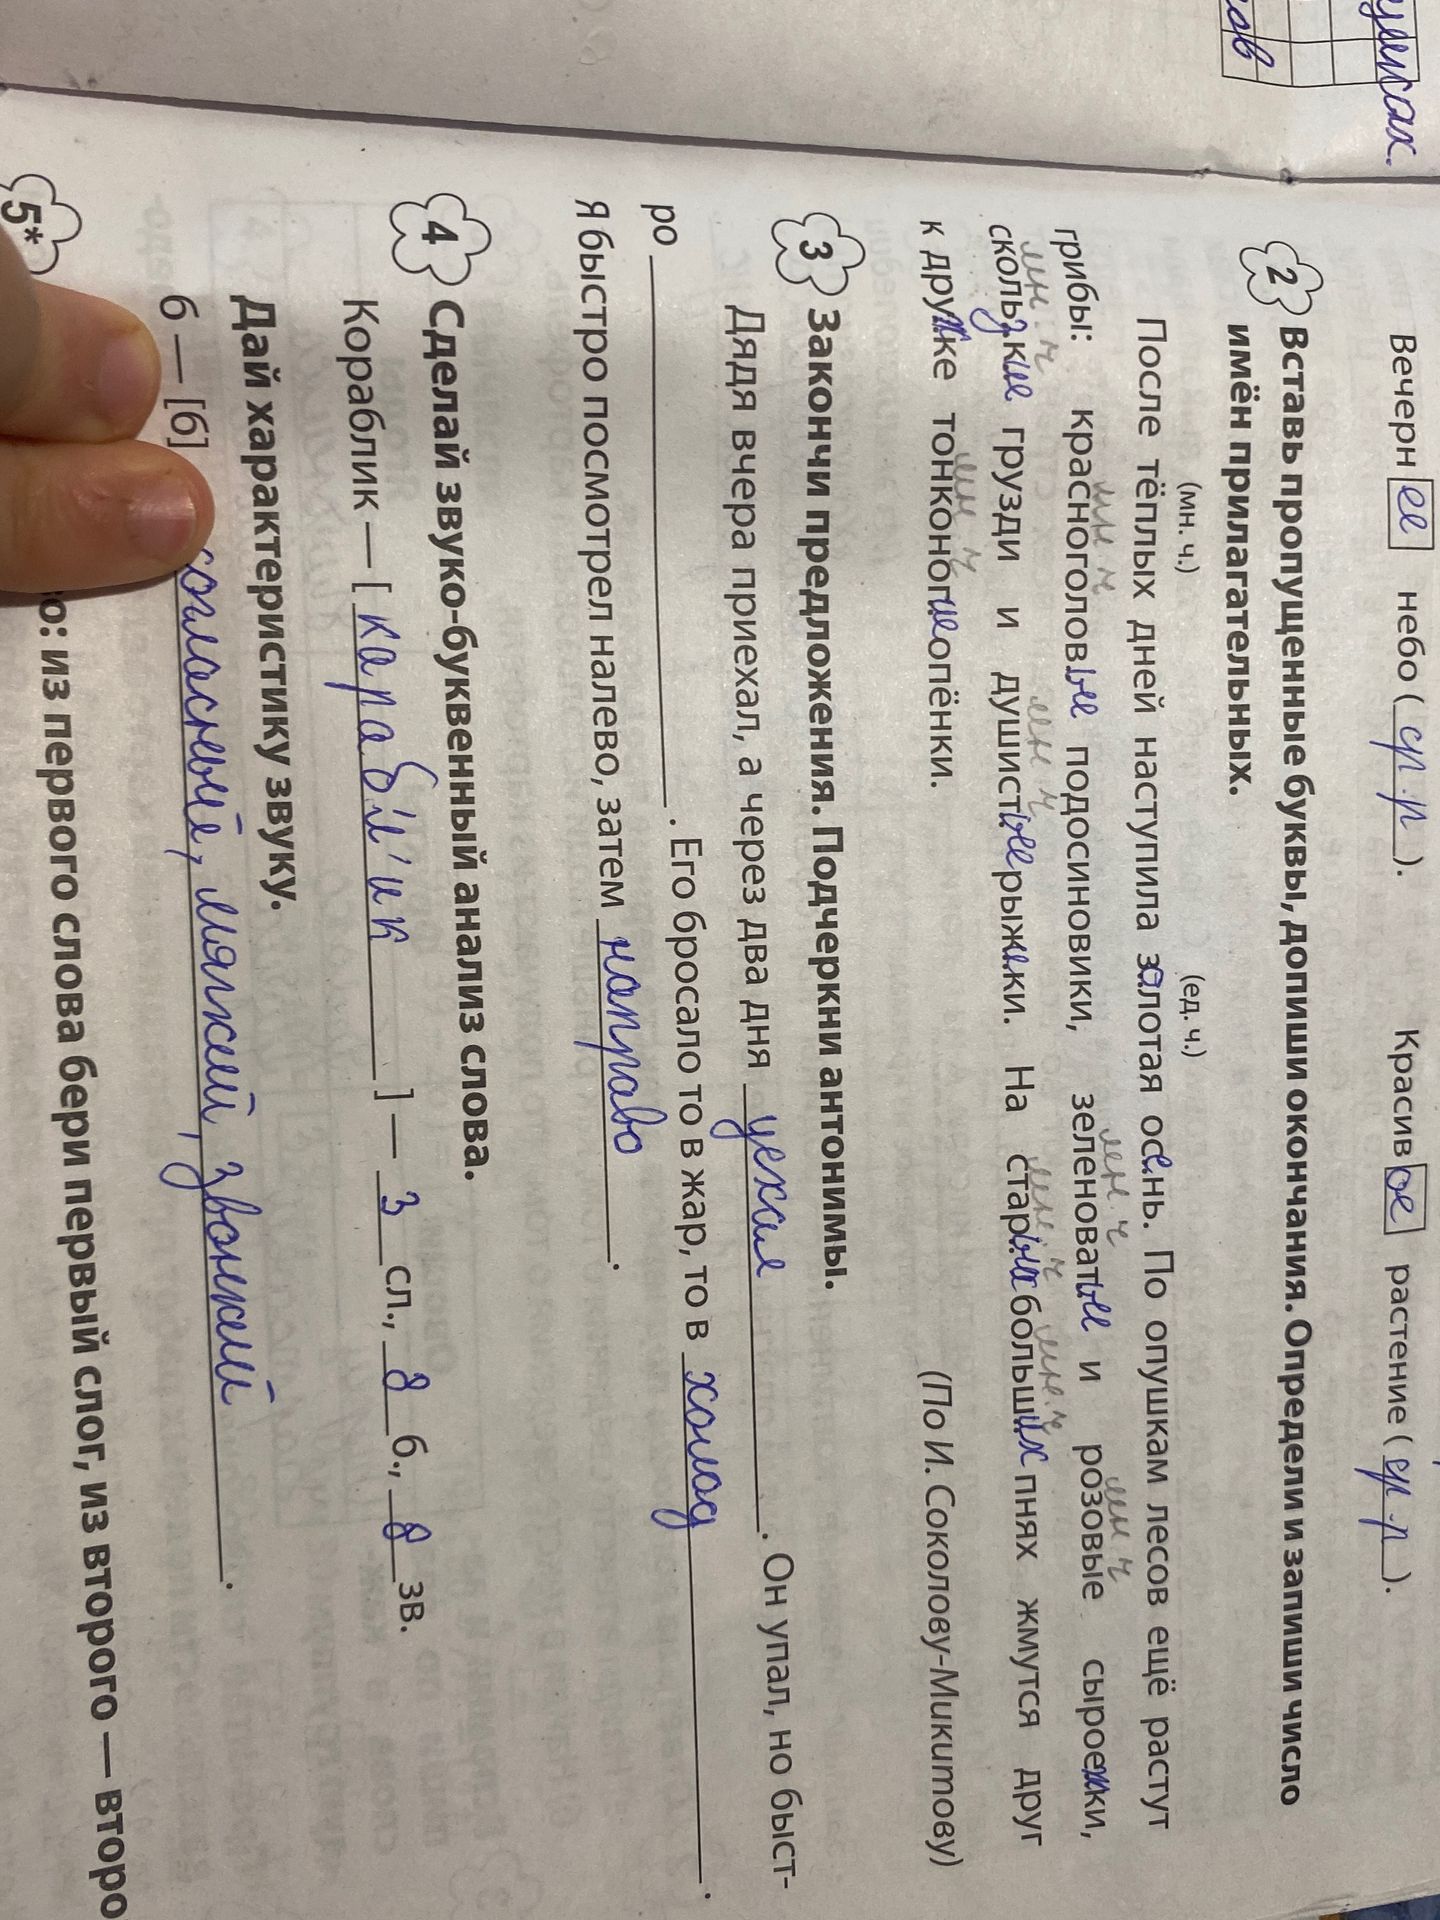 ов
Вечернее небо (ср. р). Красивое растение (ср. р).
2 Вставь пропущенные буквы, допиши окончания. Определи и запиши число
имён прилагательных.
(мн. ч.) (ед. ч.)
После тёплых дней наступила золотая осень. По опушкам лесов ещё растут
мн ч мн. ч мн ч
грибы: красноголовые подосиновики, зеленоватые и розовые сыроежки,
мн. ч мн ч мн. ч мн. ч
скользкие грузди и душистые рыжики. На старых больших пнях жмутся друг
мн ч
к дружке тонконогие опёнки. (По И. Соколову-Микитову)
3 Закончи предложения. Подчеркни антонимы.
Дядя вчера приехал, а через два дня уехал. Он упал, но быст-
ро . Его бросало то в жар, то в холод.
Я быстро посмотрел налево, затем направо.
4 Сделай звуко-буквенный анализ слова.
Кораблик — [карабл'ик] — 3 сл., 8 б., 8 зв.
Дай характеристику звуку.
б — [б] согласный, мягкий, звонкий.
5* о: из первого слова бери первый слог, из второго — второ